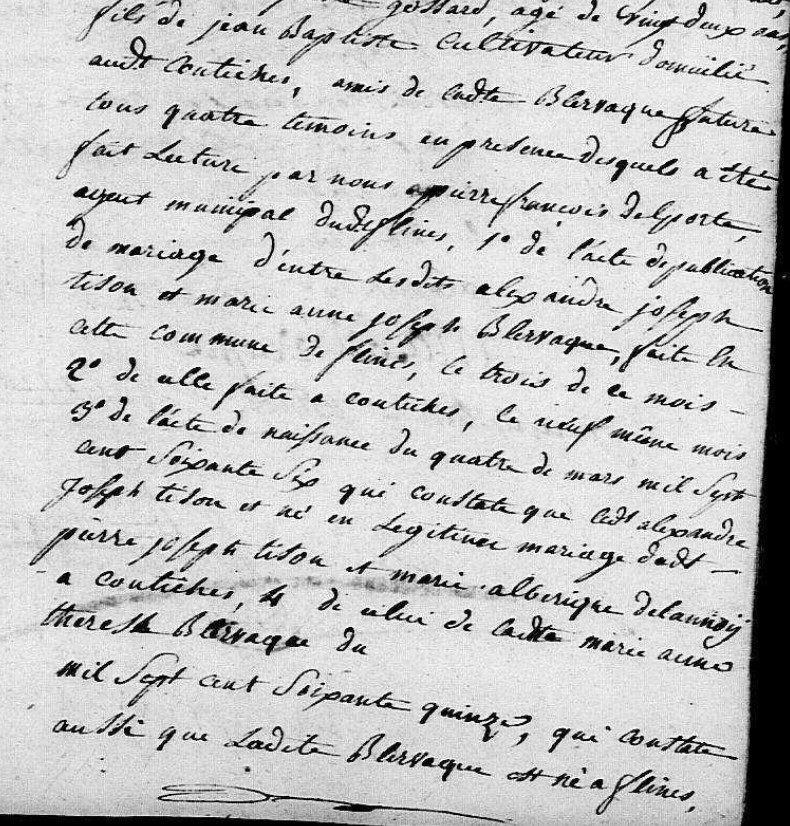 gossard, agé de vingt deux ans,
fils de jean Baptiste Cultivateur domicilié
audt Coutiches, amis de ladte Blervaque future
tous quatre temoins en presence desquels a été
fait Lecture par nous pierre françois delporte,
agent municipal dudt flines, 1º de l'acte de publication
de mariage d'entre Lesdits alexandre joseph
tison et marie anne joseph Blervaque, faite en
cette commune de flines, le trois de ce mois –
2º de celle faite a coutiches, le neuf même mois
3º de l'acte de naissance du quatre de mars mil sept
cent Soixante Six qui constate que ledt alexandre
joseph tison et né en Legitime mariage dudt –
pierre joseph tison et marie alberique delannoÿ
a coutiches, 4 de celui de ladte marie anne
therese Blervaque du
mil Sept cent Soixante quinze, qui constate
aussi que Ladite Blervaque est né a flines,